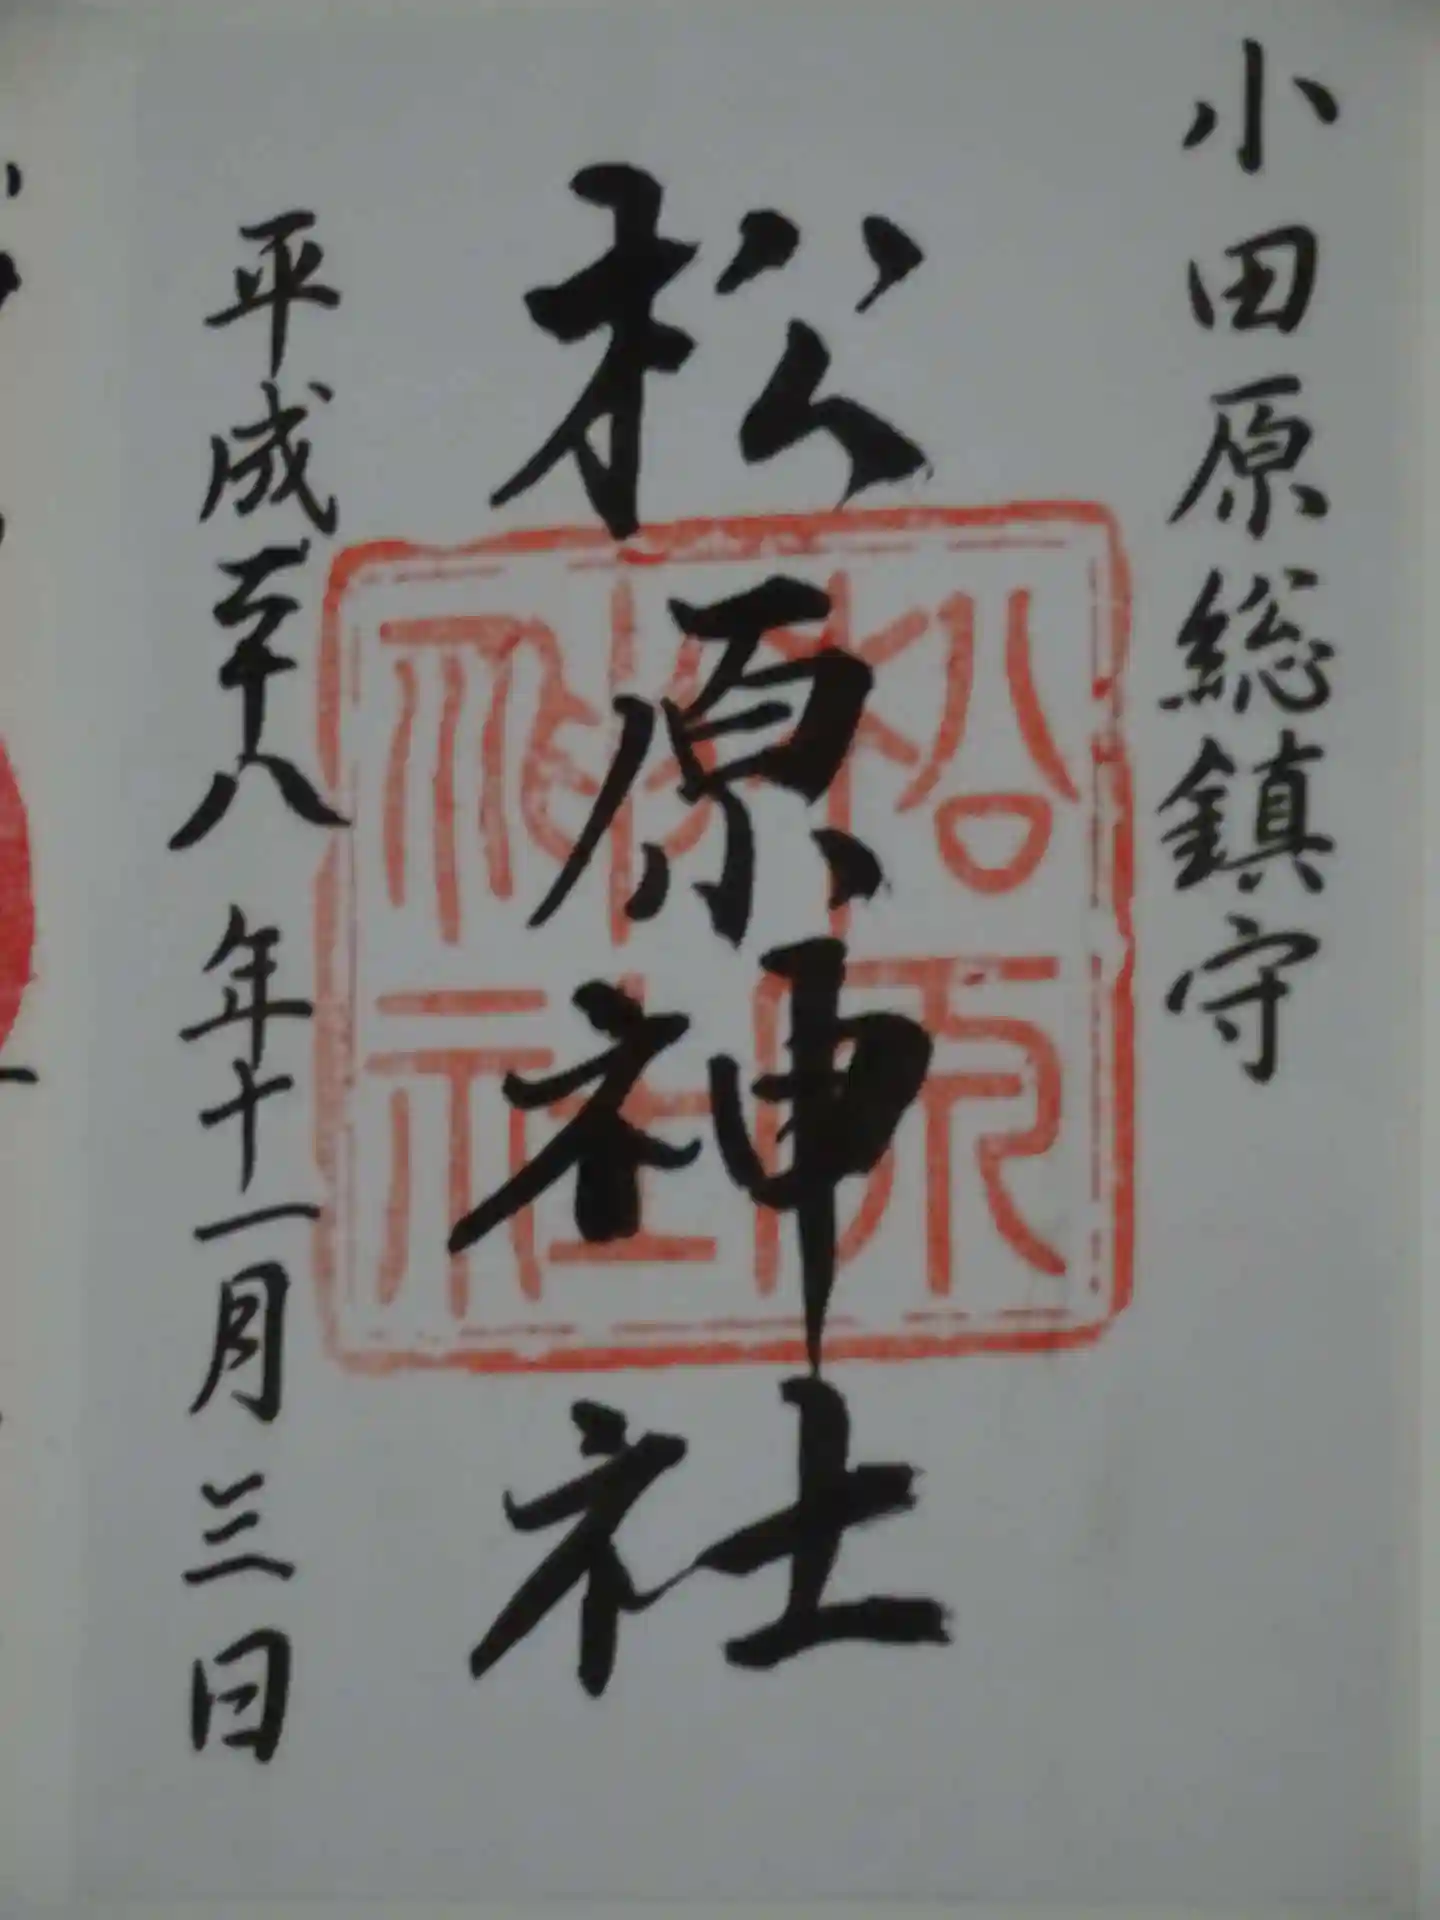 小田原総鎮守
松原神社
松原
神社
平成二十八年十一月三日